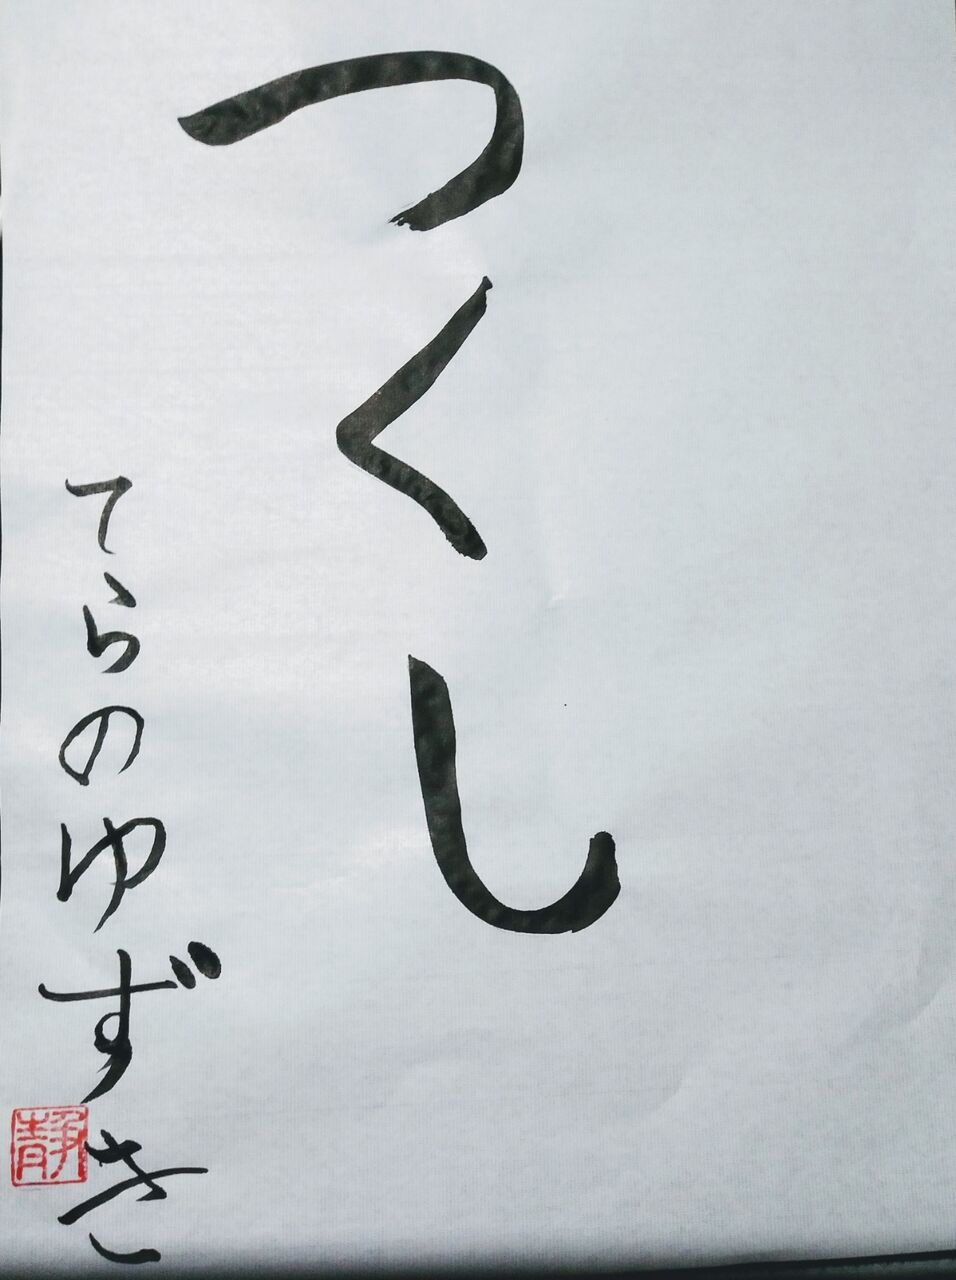 つくし
てらのゆずき
静